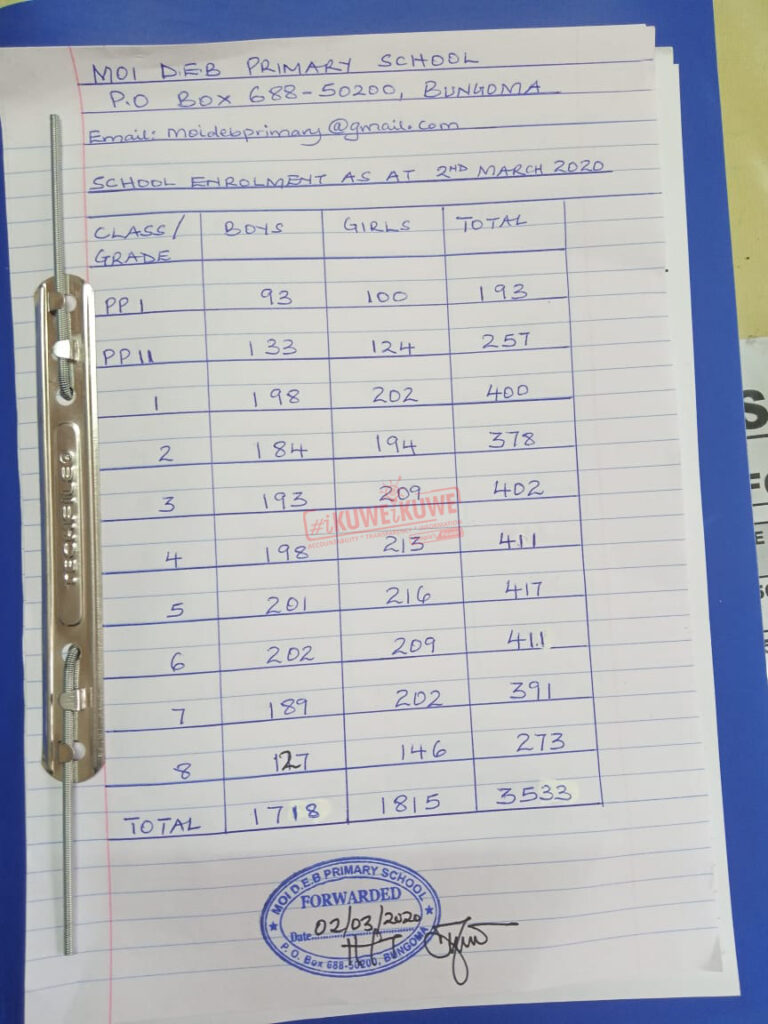 MOI D.E.B PRIMARY SCHOOL
P.O BOX 688-50200, BUNGOMA
Email: moidebprimary@gmail.com
SCHOOL ENROLMENT AS AT 2ND MARCH 2020
CLASS/ BOYS GIRLS TOTAL
GRADE
PP I 93 100 193
PP II 133 124 257
1 198 202 400
2 184 194 378
3 193 209 402
#iKUWEiKUWE
4 198 213 411
5 201 216 417
6 202 209 411
7 189 202 391
8 127 146 273
TOTAL 1718 1815 3533
MOI D.E.B PRIMARY SCHOOL
FORWARDED
02/03/2020
Date
P.O. Box 688-50200, BUNGOMA